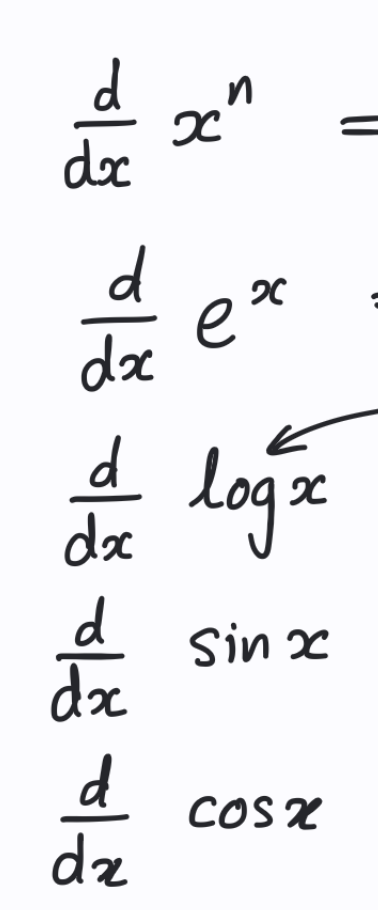 d/dx xⁿ =
d/dx eˣ
d/dx log x
d/dx sin x
d/dx cos x